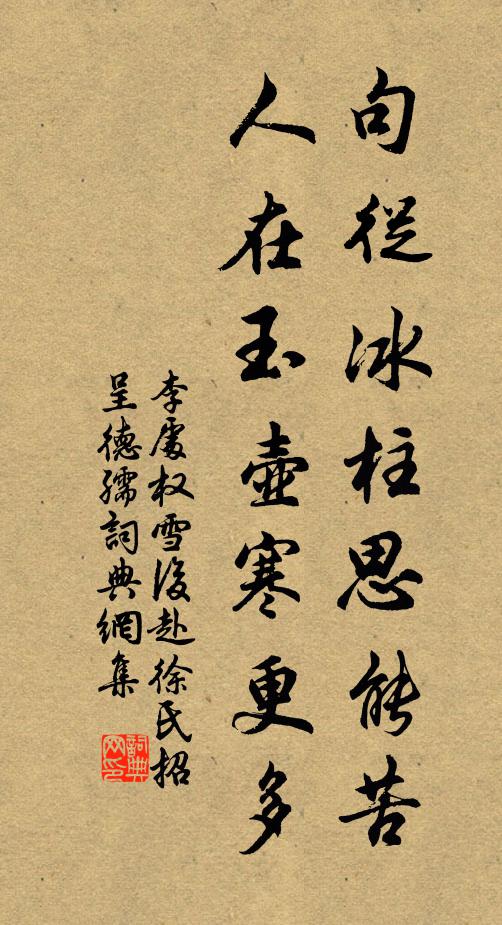 句從冰柱思能苦
人在玉壺寒更多
李處权雪後赴徐氏招
呈德孺詞典網集
詞典
网印